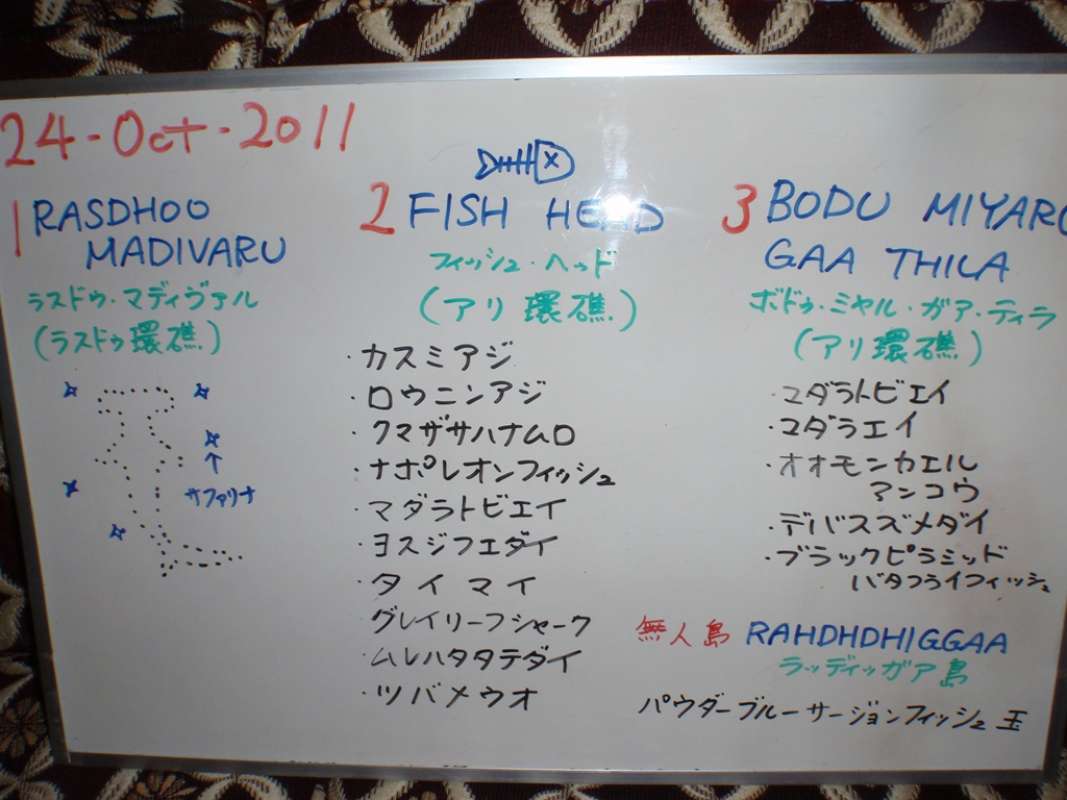 24-Oct-2011
1 RASDHOO
MADIVARU
ラスドゥ・マディヴァル
(ラスドゥ環礁)
サファリナ
2 FISH HEAD
フィッシュ・ヘッド
(アリ環礁)
・カスミアジ
・ロウニンアジ
・クマザサハナムロ
・ナポレオンフィッシュ
・マダラトビエイ
・ヨスジフエダイ
・タイマイ
グレイリーフシャーク
・ムレハタタテダイ
・ツバメウオ
3 BODU MIYARU
GAA THILA
ボドゥ・ミヤル・ガア・ティラ
(アリ環礁)
・マダラトビエイ
・マダラエイ
・オオモンカエル
アンコウ
・デバスズメダイ
・ブラックピラミッド
バタフライフィッシュ
無人島 RAHDHDHIGGAA
ラッディッガア島
パウダーブルーサージョンフィッシュ 玉